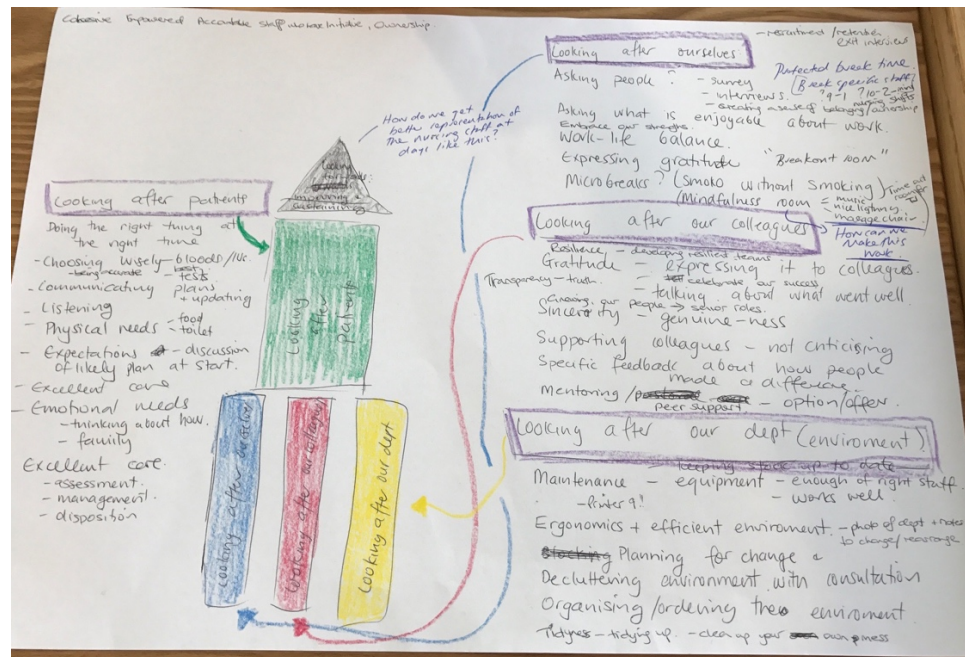 Cohesive Empowered Accountable Staff who have Initiative, Ownership.
How do we get
better representation of
the nursing staff at
days like this?
Looking
improving
sustaining
Looking after patients
Doing the right thing at
the right time
- Choosing wisely - bloods/IVs.
- being accurate - best tests
- Communicating plans
+ updating
- Listening
- Physical needs - food
- toilet
- Expectations - discussion
of likely plan at start.
- Excellent care
- Emotional needs
- thinking about how.
- family
Excellent care.
- assessment.
- management.
- disposition
Looking after patients
Looking after ourselves
Looking after our colleagues
Looking after our dept
Looking after ourselves
- recruitment/retention
exit interviews
Asking people? - survey
- interviews.
- creating a sense of belonging/ownership
Protected break time.
Break specific staff
? 9-1 ? 10-2
nursing shifts
Asking what is enjoyable about work.
Embrace our strengths.
Work-life balance.
Expressing gratitude "Breakout room"
Microbreaks? (Smoko without smoking)
/Mindfulness room = music
- massage chair
Time out
Looking after our colleagues
How can we
make this
work.
Resilience - developing resilient teams
Gratitude - expressing it to colleagues.
Transparency - truth. celebrate our success
- talking about what went well.
Knowing our people → senior roles.
Sincerity - genuine-ness
Supporting colleagues - not criticising
Specific feedback about how people
made a difference.
Mentoring/ - option/offer.
peer support
Looking after our dept (enviroment)
- keeping stock up to date
Maintenance - equipment - enough of right staff.
- Printer 9! - works well.
Ergonomics + efficient enviroment. - photo of dept + notes
to change/rearrange
Stocking Planning for change
Decluttering environment with consultation
Organising/ordering the enviroment
Tidyness - tidying up. - clean up your own mess